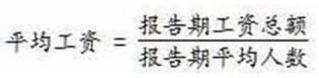 平均工资 = 报告期工资总额
报告期平均人数